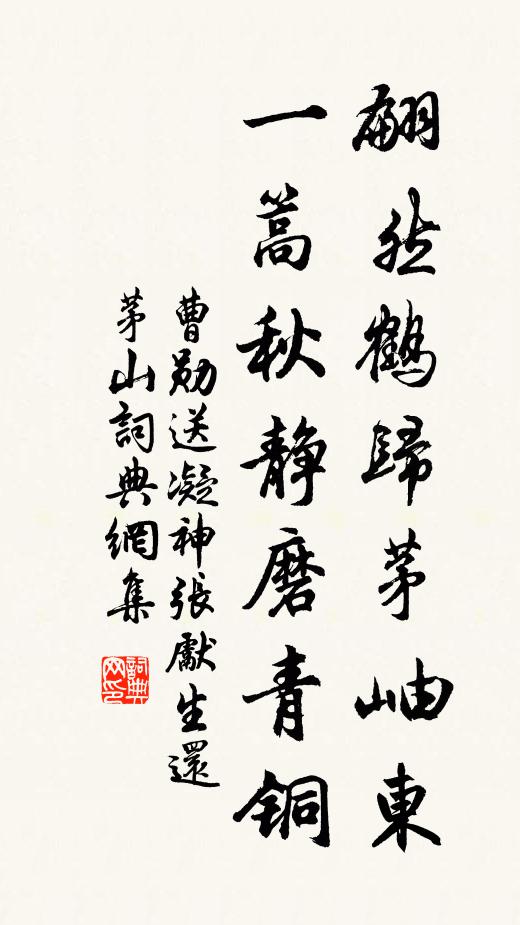 翩然鹤歸茅岫東
一篙秋静磨青铜
曹勛送凝神張獻生還
茅山詞典網集
詞典網印